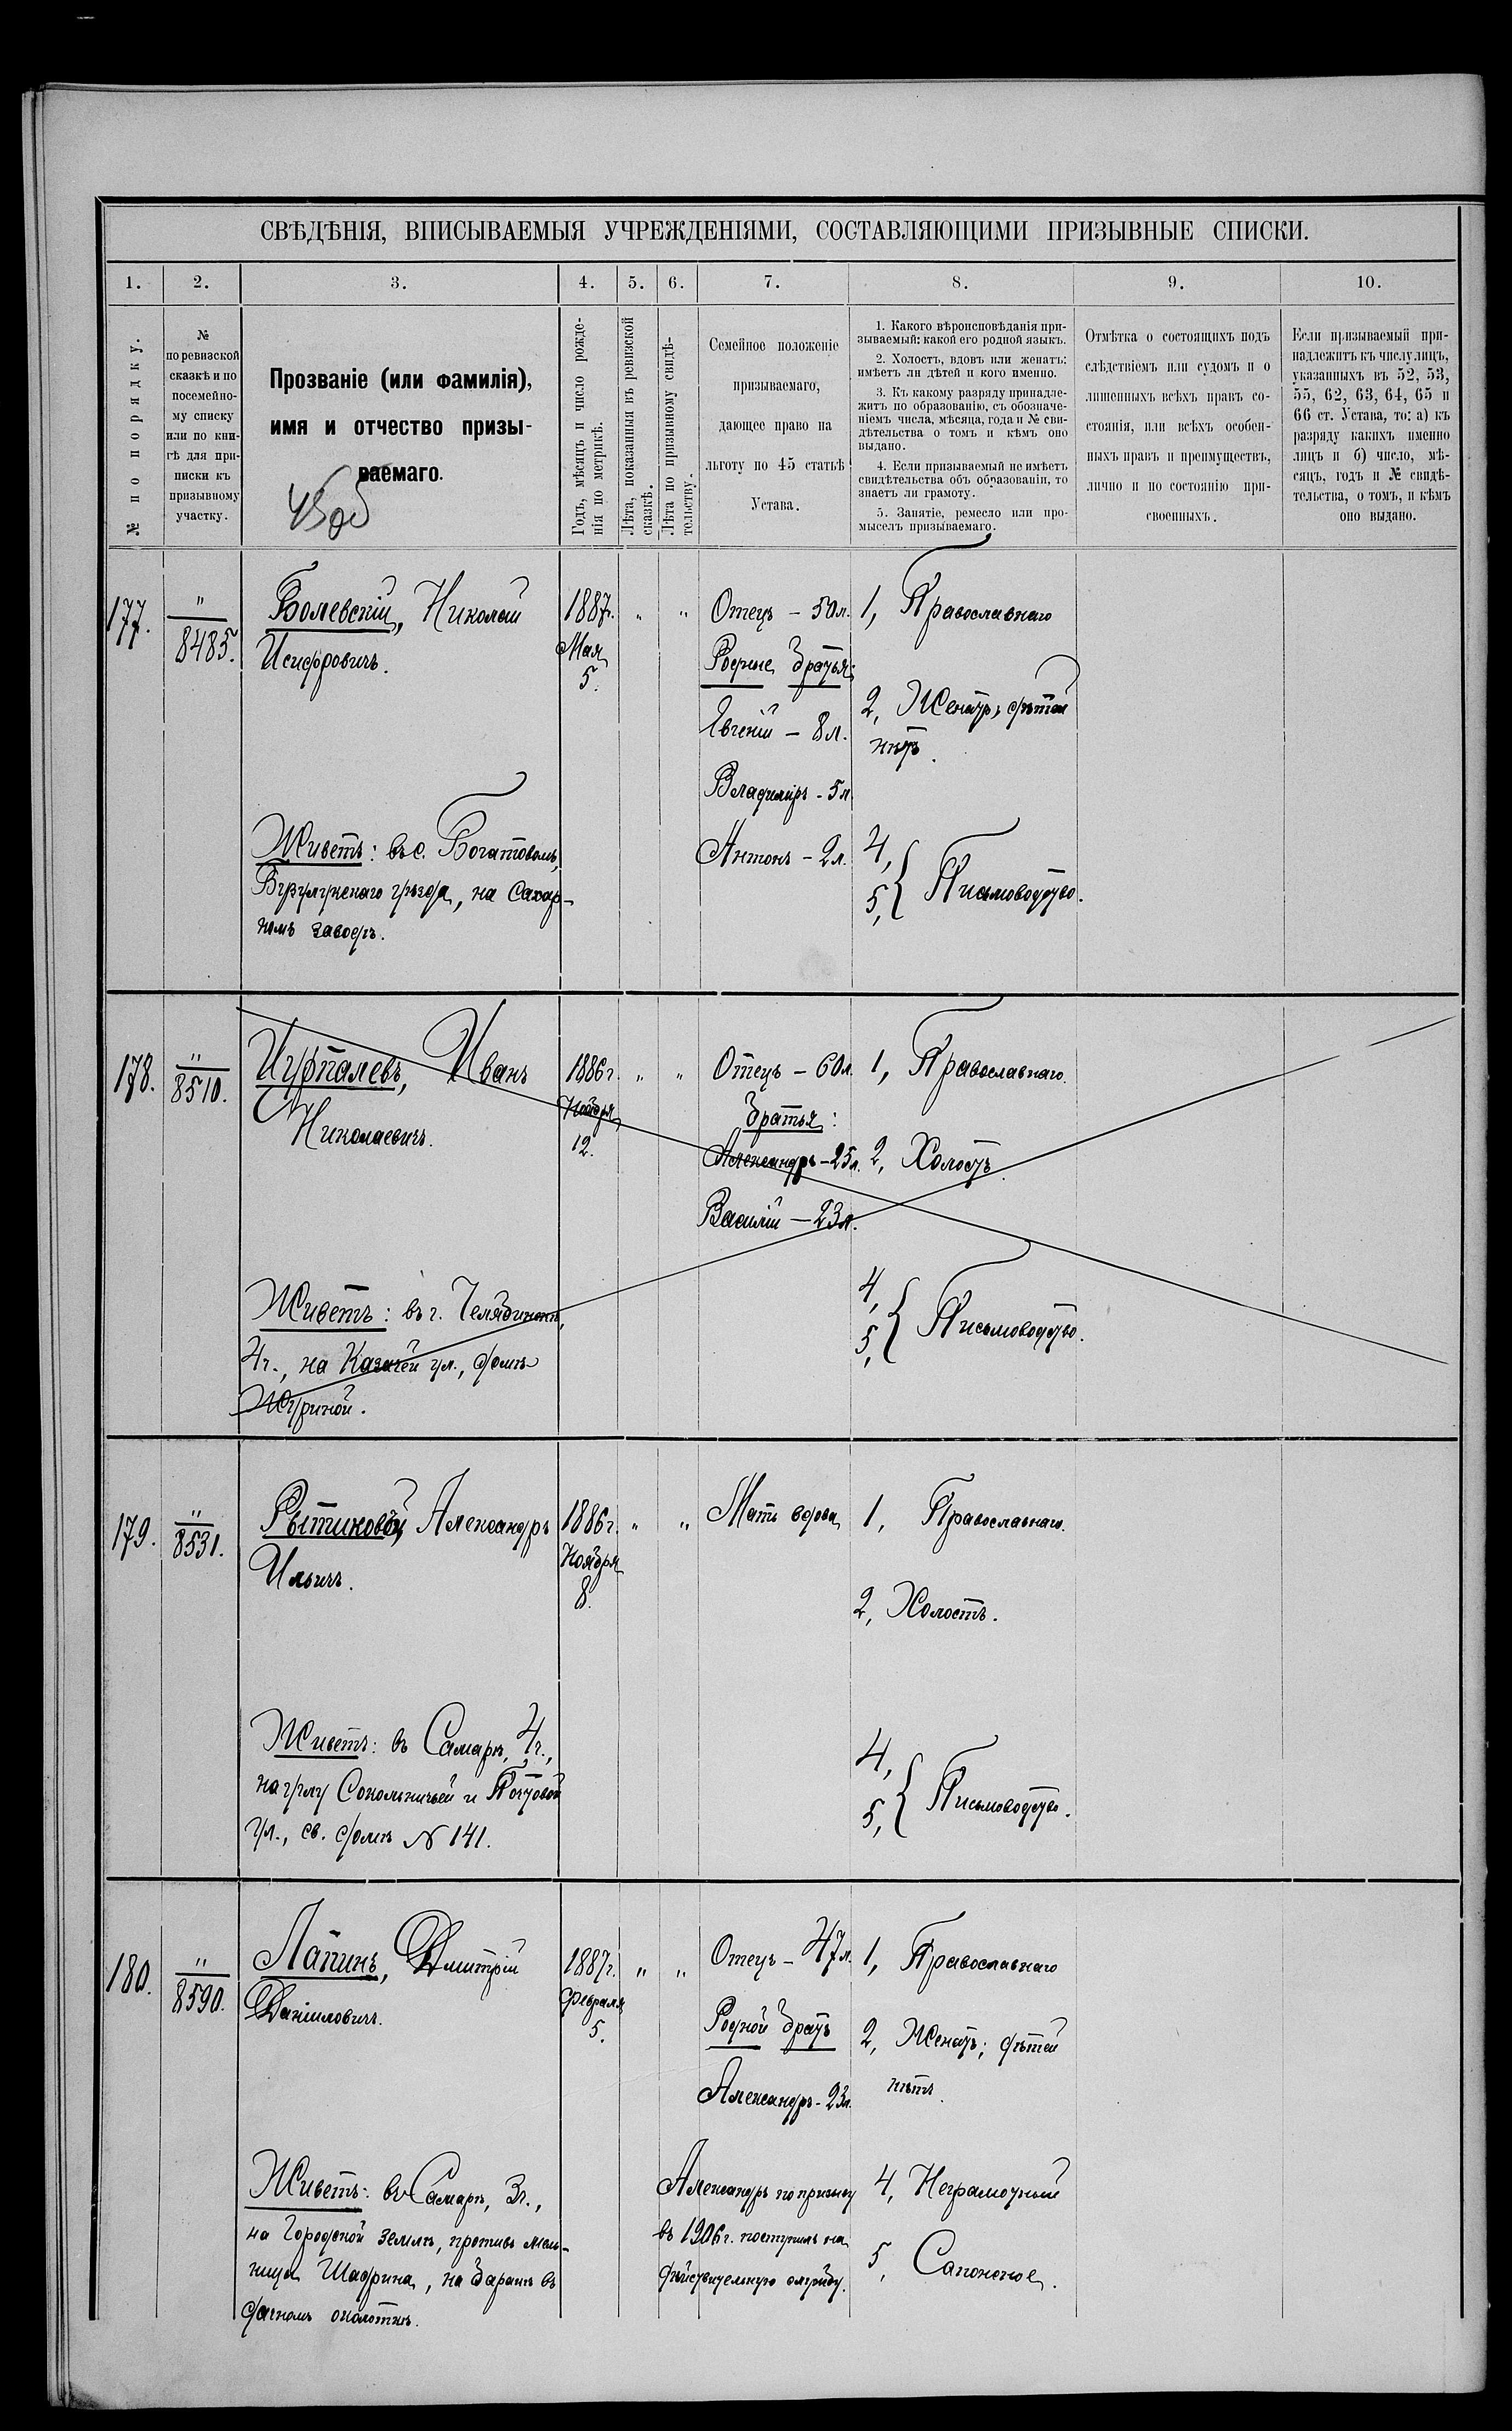 СВѢДѢНІЯ, ВПИСЫВАЕМЫЯ УЧРЕЖДЕНІЯМИ, СОСТАВЛЯЮЩИМИ ПРИЗЫВНЫЕ СПИСКИ.
1. 2. 3. 4. 5. 6. 7. 8. 9. 10.
№ по порядку.
№
по ревизской
сказкѣ и по
посемейно-
му списку
или по кни-
гѣ для при-
писки къ
призывному
участку.
Прозваніе (или фамилія),
имя и отчество призы-
ваемаго.
Годъ, мѣсяцъ и число рожде-
нія по метрикѣ.
Лѣта, показанныя въ ревизской
сказкѣ.
Лѣта по призывному свидѣ-
тельству.
Семейное положеніе
призываемаго,
дающее право на
льготу по 45 статьѣ
Устава.
1. Какого вѣроисповѣданія при-
зываемый: какой его родной языкъ.
2. Холостъ, вдовъ или женатъ:
имѣетъ ли дѣтей и кого именно.
3. Къ какому разряду принадле-
житъ по образованію, съ обозначе-
ніемъ числа, мѣсяца, года и № сви-
дѣтельства о томъ и кѣмъ оно
выдано.
4. Если призываемый не имѣетъ
свидѣтельства объ образованіи, то
знаетъ ли грамоту.
5. Занятіе, ремесло или про-
мыселъ призываемаго.
Отмѣтка о состоящихъ подъ
слѣдствіемъ или судомъ и о
лишенныхъ всѣхъ правъ со-
стоянія, или всѣхъ особен-
ныхъ правъ и преимуществъ,
лично и по состоянію при-
своенныхъ.
Если призываемый при-
надлежитъ къ числу лицъ,
указанныхъ въ 52, 53,
55, 62, 63, 64, 65 и
66 ст. Устава, то: а) къ
разряду какихъ именно
лицъ и б) число, мѣ-
сяцъ, годъ и № свидѣ-
тельства, о томъ, и кѣмъ
оно выдано.
177.
"
8485.
Болевскій, Николай
Исифровичъ.
Живетъ: въ с. Богатовомъ,
Бузулукскаго уѣзда, на Сахар-
номъ заводѣ.
1887г.
Мая
5.
" "
Отецъ - 50л.
Родные братья:
Евгеній - 8л.
Владиміръ - 5л.
Антонъ - 2л.
1, Православнаго
2, Женатъ, дѣтей
нѣтъ.
4,
5, { Письмоводство.
178.
"
8510.
Иван
Николаевичъ.
Живетъ: въ г. Челябинскѣ,
4ч., на Казачей ул., домъ
1886г.
Ноября
12.
" "
Отецъ - 60л.
Братья:
Александръ - 25л.
Василій - 23л.
1, Православнаго.
2, Холостъ.
4,
5, { Письмоводство.
179.
"
8531.
Александръ
Ильичъ.
Живетъ: въ Самарѣ, 4ч.,
на углу Сокольничьей и Почтовой
ул., св. домъ № 141.
1886г.
Ноября
8.
" "
Мать вдова
1, Православнаго.
2, Холостъ.
4,
5, { Письмоводство.
180.
"
8590.
Лапинъ, Дмитрій
Даніиловичъ.
Живетъ: въ Самарѣ, 3ч.,
на Городской землѣ, противъ мель-
ницы Шадрина, на баранъ въ
дачномъ околоткѣ.
1887г.
Февраля
5.
" "
Отецъ - 47л.
Родной братъ
Александръ - 23л.
Александръ по призыву
въ 1906г. поступилъ на
дѣйствительную службу.
1, Православнаго
2, Женатъ; дѣтей
нѣтъ.
4, Неграмотный
5, Сапожное.